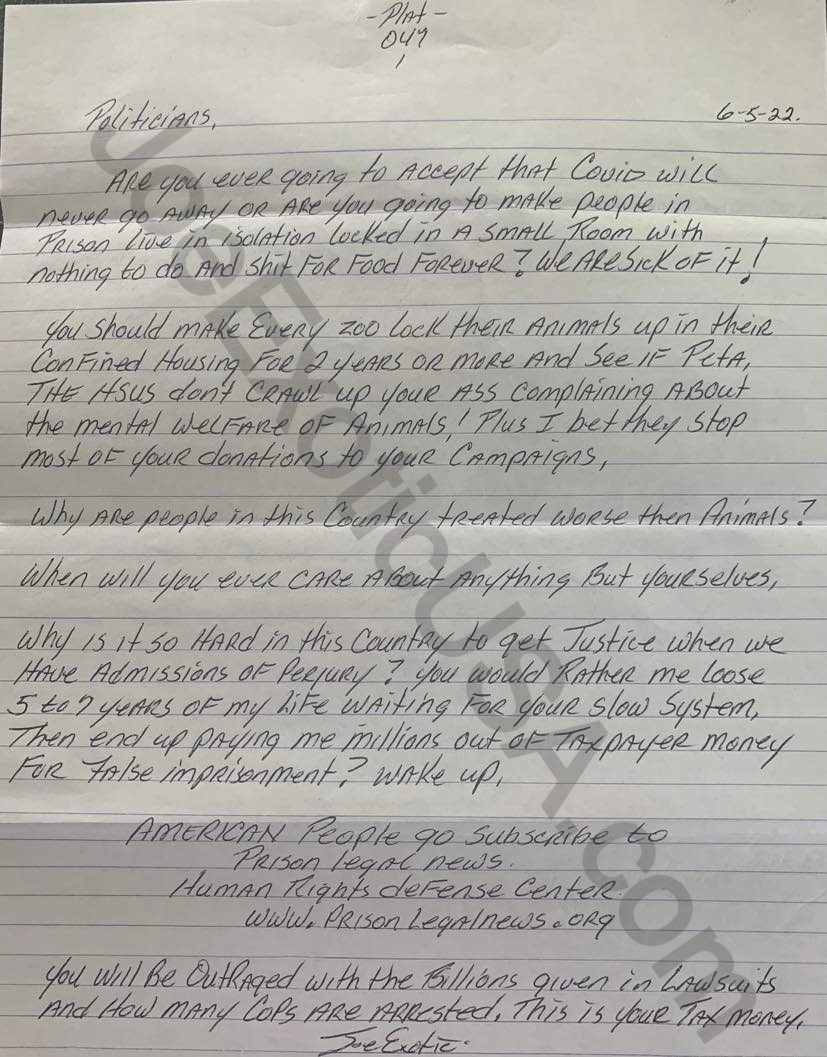 -Plat-
047
1
Politicians,
6-5-22.
Are you ever going to accept that Covid will
never go away or are you going to make people in
Prison live in isolation locked in a small room with
nothing to do and shit for food forever? We are sick of it!
You should make every zoo lock their animals up in their
confined housing for 2 years or more and see if PetA,
The HSUS don't crawl up your ass complaining about
the mental welfare of animals! Plus I bet they stop
most of your donations to your campaigns,
Why are people in this Country treated worse then animals?
When will you ever care about anything but yourselves,
Why is it so hard in this Country to get Justice when we
have Admissions of Perjury? You would rather me loose
5 to 7 years of my life waiting for your slow system,
Then end up paying me millions out of taxpayer money
for false imprisonment? Wake up,
AMERICAN People go subscribe to
Prison legal news.
Human Rights defense Center.
www.PrisonLegalnews.org
You will be outraged with the Billions given in Lawsuits
and how many cops are arrested. This is your tax money.
Joe Exotic.
JoeExoticUSA.com